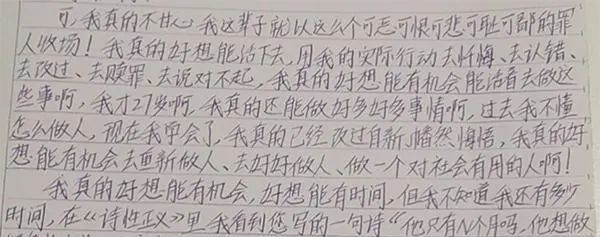 可，我真的不甘心我这辈子就以这么个可恶可恨可悲可耻可鄙的罪
人收场！我真的好想能活下去，用我的实际行动去忏悔、去认错、
去改过、去赎罪、去说对不起，我真的好想能有机会能活着去做这
些事啊，我才27岁啊，我真的还能做好多好多事情啊，过去我不懂
怎么做人，现在我学会了，我真的已经改过自新，幡然悔悟，我真的好
想能有机会去重新做人、去好好做人、做一个对社会有用的人啊！
我真的好想能有机会，好想能有时间，但我不知道我还有多少
时间，在《诗性正义》里我看到您写的一句诗“他只有N个月吗，他想做